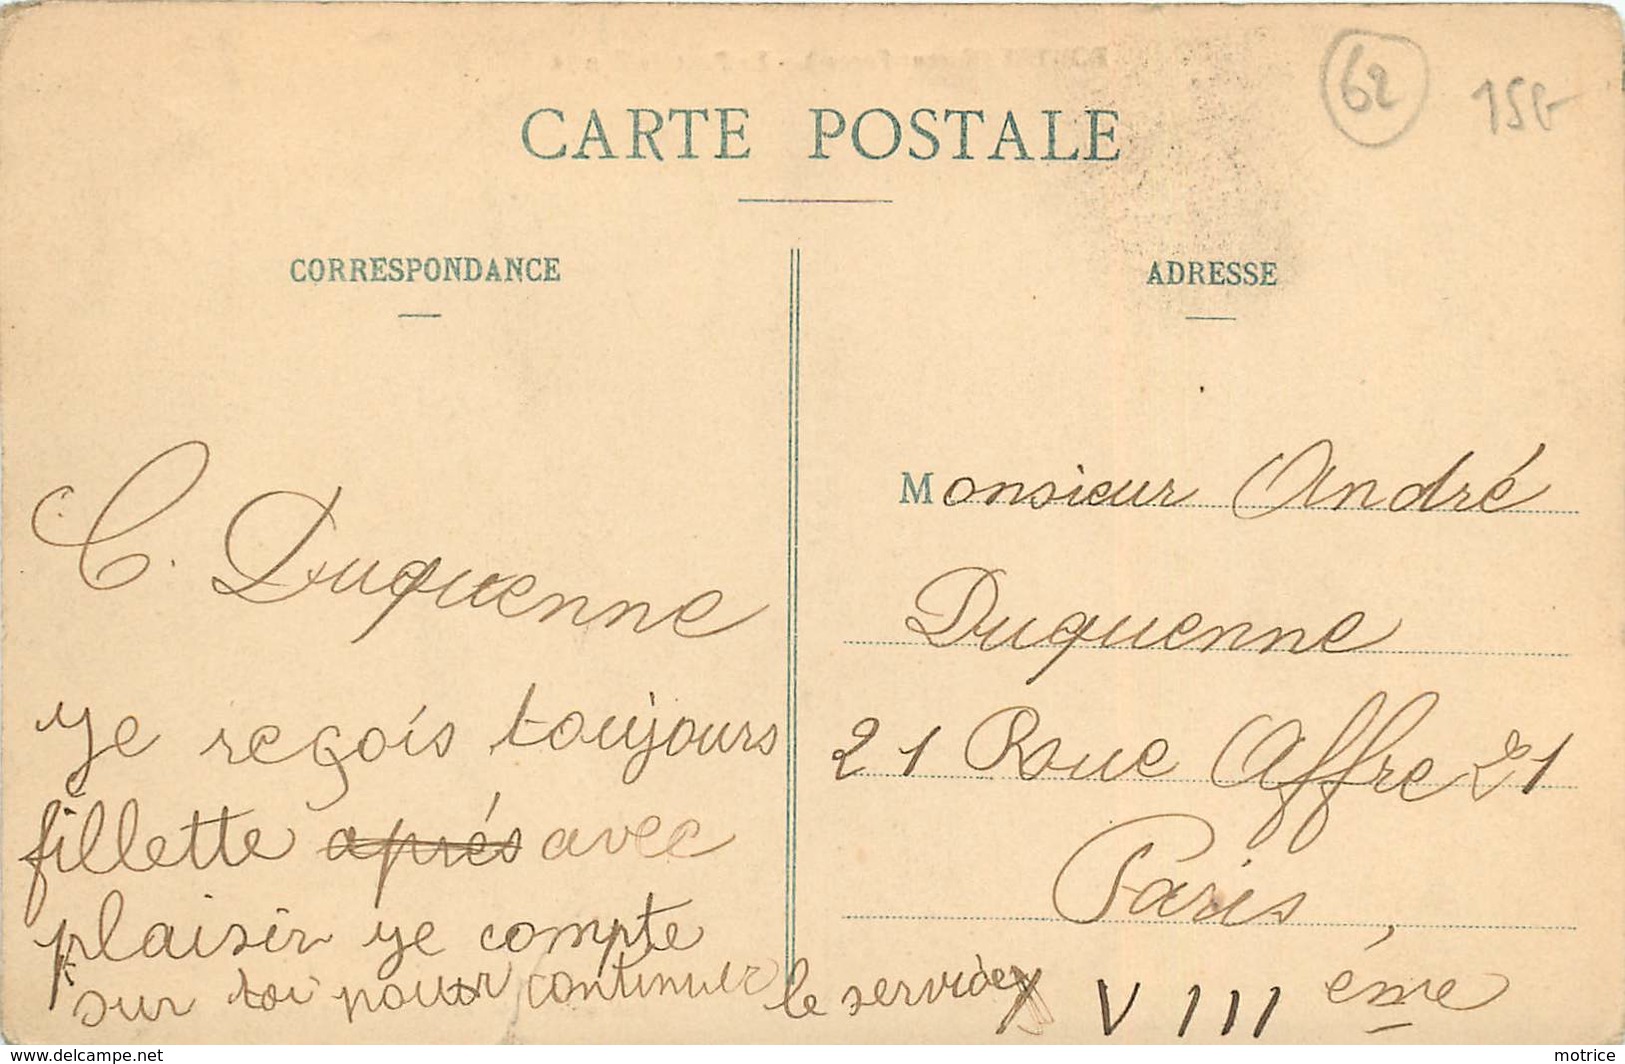 62 15F
CARTE POSTALE
CORRESPONDANCE
C. Duquenne
Je reçois toujours
fillette après avec
plaisir je compte
sur toi pour continuer le service
ADRESSE
Monsieur André
Duquenne
21 Rue Affre 21
Paris,
VIII ème
https://www.delcampe.net
motrice